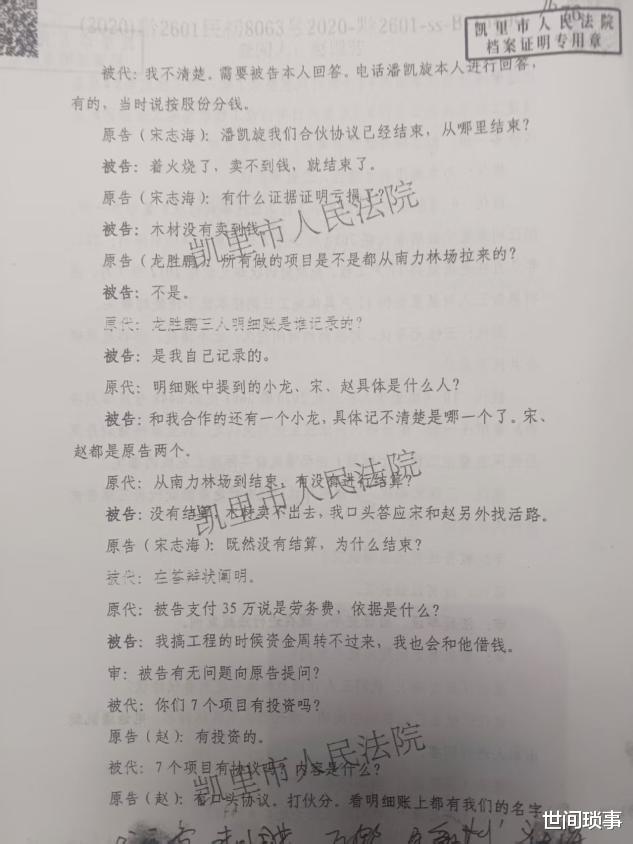 (2020)黔2601民初8063号2020-黔2601-ss-B
凯里市人民法院
档案证明专用章
被代：我不清楚。需要被告本人回答。电话潘凯旋本人进行回答，
有的，当时说按股份分钱。
原告（宋志海）：潘凯旋我们合伙协议已经结束，从哪里结束？
被告：着火烧了，卖不到钱，就结束了。
原告（宋志海）：有什么证据证明亏损了？
被告：木材没有卖到钱。
凯里市人民法院
原告（龙胜鹏）：所有做的项目是不是都从南力林场拉来的？
被告：不是。
原代：龙胜鹏三人明细账是谁记录的？
被告：是我自己记录的。
原代：明细账中提到的小龙、宋、赵具体是什么人？
被告：和我合作的还有一个小龙，具体记不清楚是哪一个了。宋、
赵都是原告两个。
原代：从南力林场到结束，有没有进行结算？
凯里市人民法院
被告：没有结算，木材卖不出去，我口头答应宋和赵另外找活路。
原告（宋志海）：既然没有结算，为什么结束？
被代：在答辩状阐明。
原代：被告支付 35 万说是劳务费，依据是什么？
被告：我搞工程的时候资金周转不过来，我也会和他借钱。
审：被告有无问题向原告提问？
被代：你们 7 个项目有投资吗？
原告（赵）：有投资的。
凯里市人民法院
被代：7 个项目有协议吗？内容是什么？
原告（赵）：有口头协议。打伙分。看明细账上都有我们的名字
世间琐事